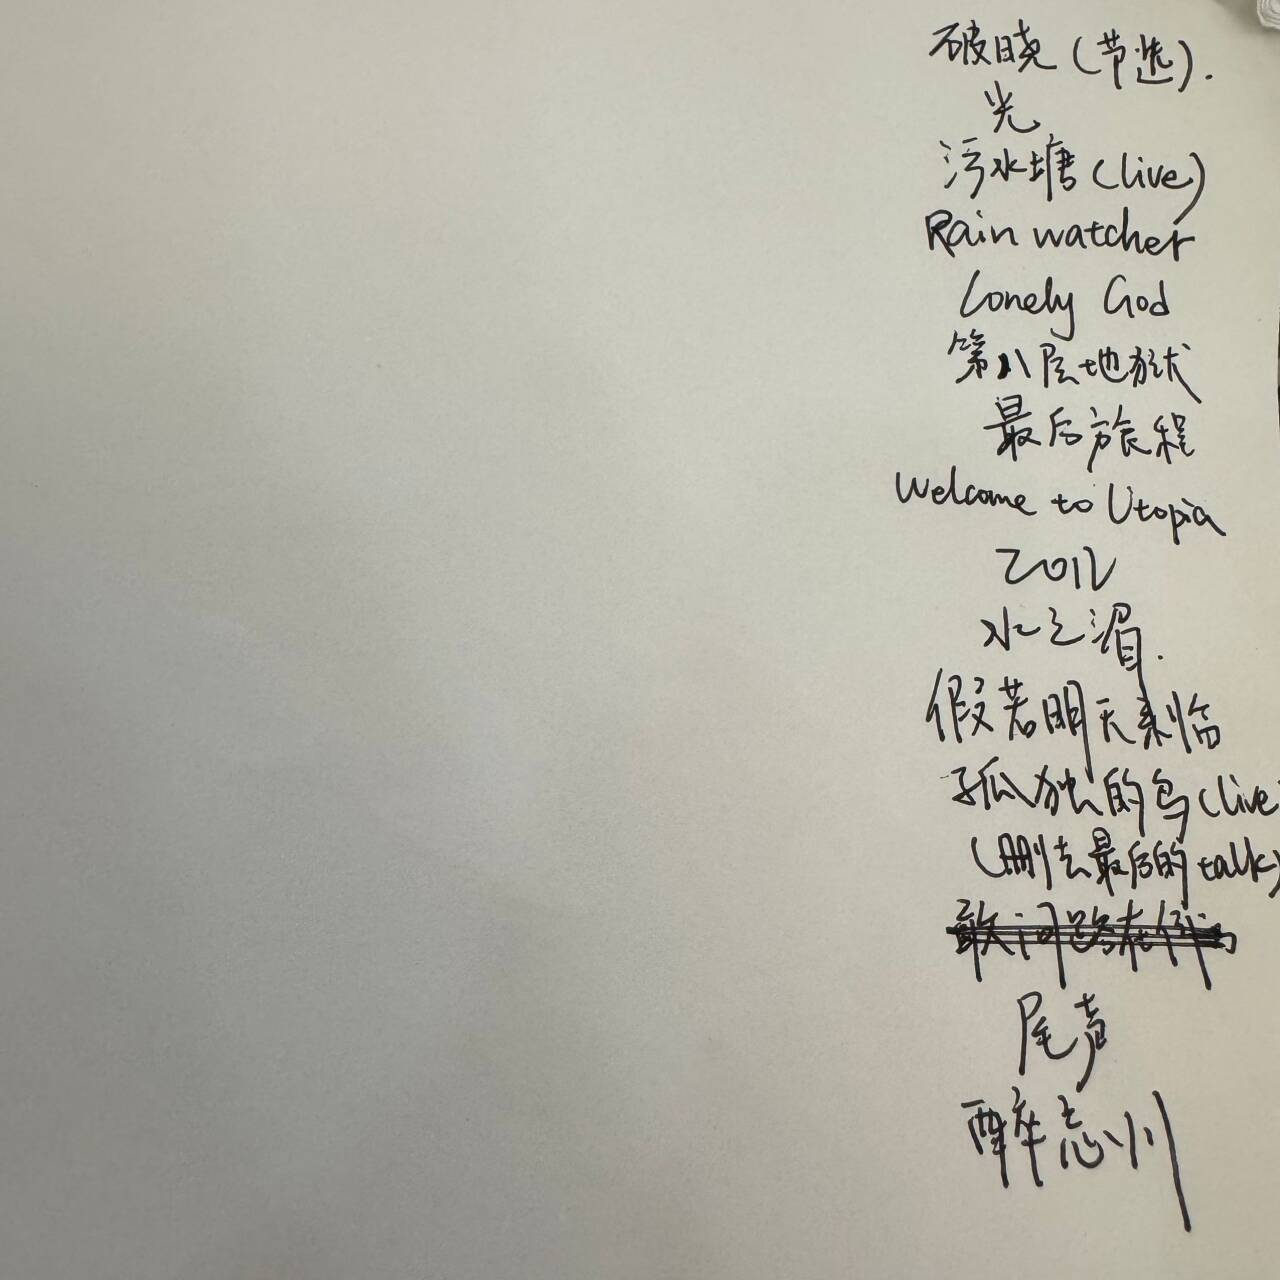 破晓（节选）.
光
污水塘（live）
Rain watcher
Lonely God
第八层地狱
最后旅程
Welcome to Utopia
2012
水之湄.
假若明天来临
孤独的鸟（live
（删去最后的talk）
敢问路在何
尾声
醉忘川